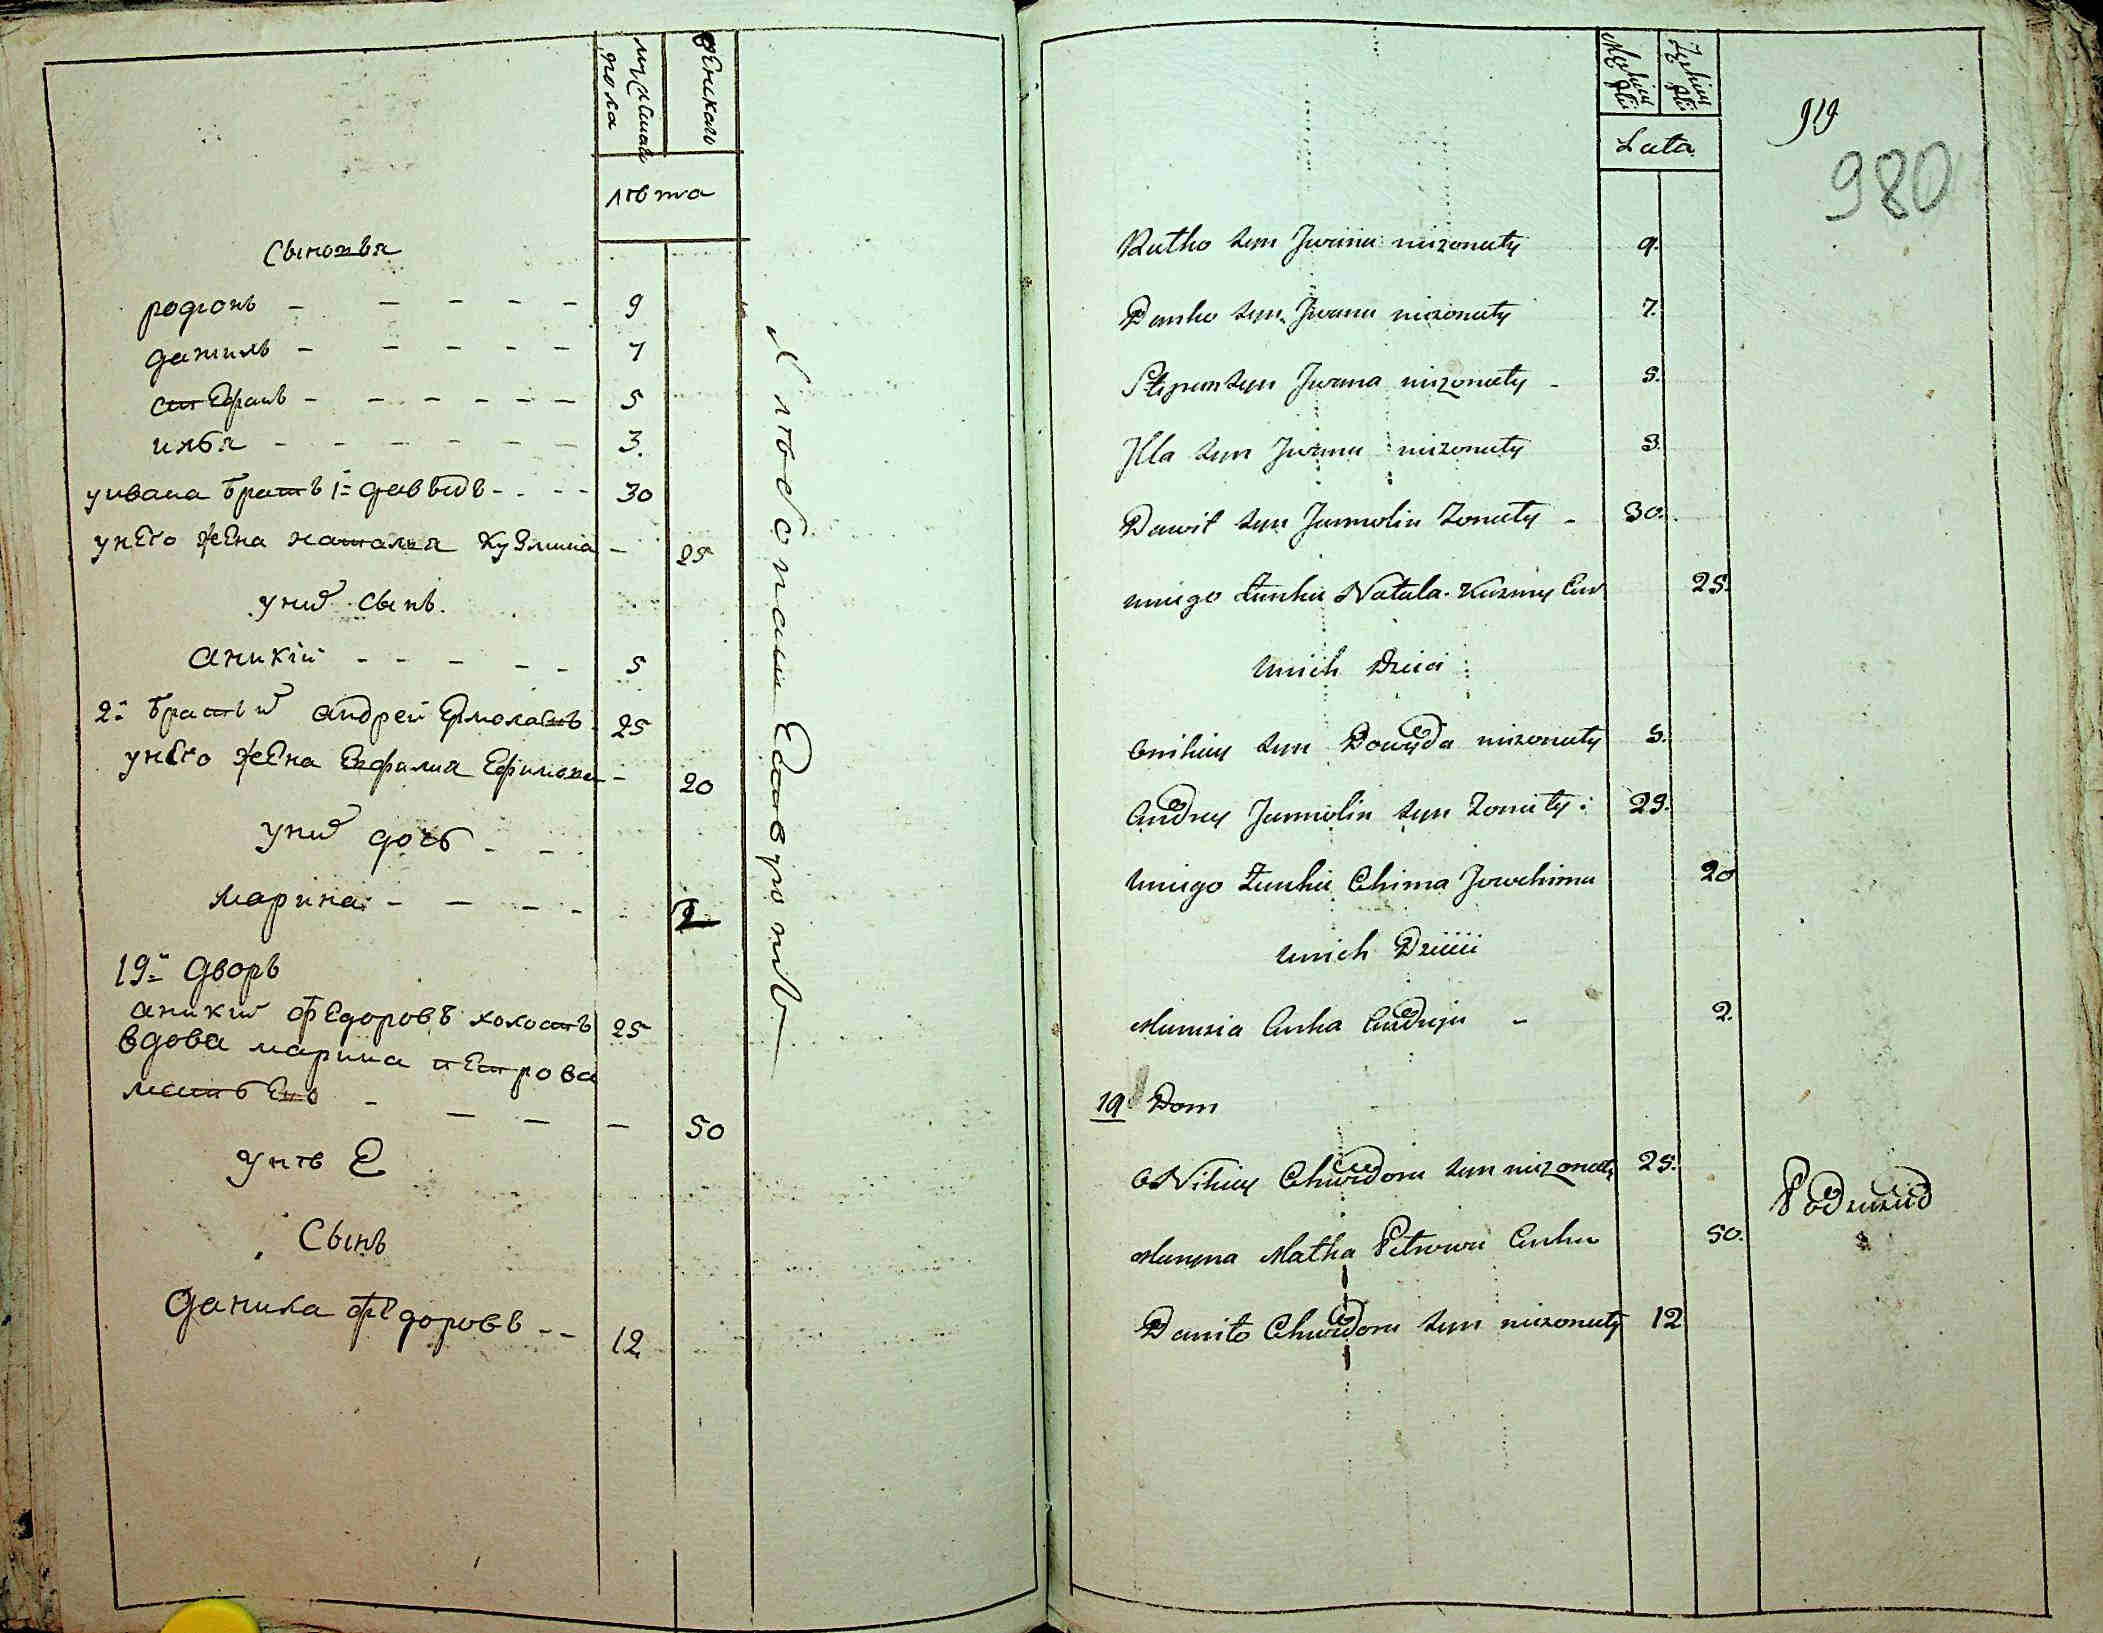 мужеска пола
женскаго
лѣта
Сыновья
родіонъ - - - - - 9
данилъ - - - - - 7
стефанъ - - - - - - 5
илья - - - - - - 3.
уивана братъ 1й давыдъ - - - - 30
унего жена наталья Кузмина - 25
уних сынъ.
аникій - - - - - 5
2й братъ и андрей Ермолаевъ 25
унего жена Евфимия Ефимова - 20
уних дочь - - -
марина - - - - 2
19й дворъ
аникий федоровъ холостъ 25
вдова марина петрова
мать Ево - - - - 50
унѣ Е
Сынъ
данила федоровъ - - 12
Lata
919
980
Ratko syn Jwana niezonaty 9.
Danko syn Jwana niezonaty 7.
Stepan syn Jwana niezonaty - 5.
Jlla syn Jwana niezonaty 3.
Dawid syn Jarmolin Zonaty - 30.
uniego Zanka Natala Kuzmy Cur 25.
unich Dzieci
Anikiey syn Dawyda niezonaty 5.
Andrey Jarmolin syn Zonaty: 25.
uniego Zanka Chima Jowchima 20
unich Dzieci
Curka Andreja - 2.
19 Dom
ANikiey Chwedora syn niezonaty 25.
Maryna Matka Petrowa Curka 50.
Daniło Chwedora syn niezonaty 12